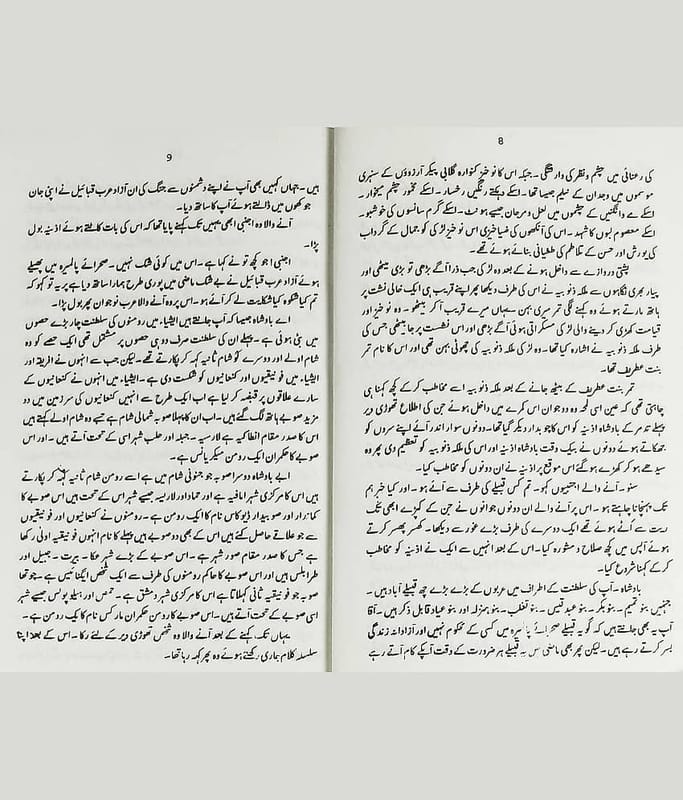 8
کی رعنائی میں چشم و نظر کی وارفتگی۔ جبکہ اس کا نوخیز کنوارہ گلابی پیکر آرزوؤں کے سنہری
موسموں میں وجدان کے نیلم جیسا تھا۔ اسکے دہکتے رنگیں رخسار۔ اسکے مخمور چشم میخوار۔
اسکے مے دانگنیں کے چشموں میں لعل و مرجان جیسے ہونٹ۔ اسکے گرم سانسوں کی خوشبو۔
اسکے معصوم لبوں کا شہد۔ اس کی آنکھوں کی ضیا خیزی اس نوخیز لڑکی کو جمال کے گرداب
کی یورش اور حسن کے تلاطم کی طغیانی بنائے ہوئے تھے۔
پشتی دروازے سے داخل ہونے کے بعد وہ لڑکی جب ذرا آگے بڑھی تو بڑی میٹھی اور
پیار بھری نگاہوں سے ملکہ ذنوبیہ نے اس کی طرف دیکھا پھر اپنے قریب ہی ایک خالی نشت پر
ہاتھ مارتے ہوئے وہ کہنے لگی تمر میری بہن یہاں میرے قریب آ کر بیٹھو۔ وہ نوخیز اور
قیامت کھڑی کر دینے والی لڑکی مسکراتی ہوئی آگے بڑھی اور اس نشست پر جا بیٹھی جس کی
طرف ملکہ ذنوبیہ نے اشارہ کیا تھا۔ وہ لڑکی ملکہ ذنوبیہ کی چھوٹی بہن تھی اور اس کا نام تمر
بنت عطریف تھا۔
تمر بنت عطریف کے بیٹھ جانے کے بعد ملکہ ذنوبیہ اسے مخاطب کر کے کچھ کہنا ہی
چاہتی تھی کہ عین اسی لمحہ وہ دو جوان اس کمرے میں داخل ہوئے جن کی اطلاع تھوڑی دیر
پہلے تدمر کے بادشاہ اذنیہ کو اس کا چوبدار دیکر گیا تھا۔ دونوں سوار اندر آئے اپنے سروں کو
جھکاتے ہوئے دونوں نے بیک وقت بادشاہ اذنیہ اور اس کی ملکہ ذنوبیہ کو تعظیم دی پھر وہ
سیدھے ہو کر کھڑے ہو گئے اس موقع پر اذنیہ نے ان دونوں کو مخاطب کیا۔
سنو۔ آنے والے اجنبیوں کہو۔ تم کس قبیلے کی طرف سے آئے ہو۔ اور کیا خبر ہم
تک پہنچانا چاہتے ہو۔ اس پر آنے والے ان دونوں جوانوں نے جن کے کپڑے ابھی تک
ریت سے اٹے ہوئے تھے ایک دوسرے کی طرف بڑے غور سے دیکھا۔ کھسر پھسر کرتے
ہوئے آپس میں کچھ صلاح و مشورہ کیا۔ اس کے بعد انہیں سے ایک نے اذنیہ کو مخاطب
کر کے کہنا شروع کیا۔
بادشاہ۔ آپ کی سلطنت کے اطراف میں عربوں کے بڑے بڑے چھ قبیلے آباد ہیں۔
جنہیں بنو تمیم۔ بنو بکر۔ بنو عبد قیس۔ بنو تغلب۔ بنو ہمزلہ اور بنو عباد قابل ذکر ہیں۔ آقا
آپ یہ بھی جانتے ہیں کہ گو یہ قبیلے صحرائے پالمیرہ میں کسی کے محکوم نہیں اور آزادانہ زندگی
بسر کرتے رہے ہیں۔ لیکن پھر بھی ماضی میں یہ قبیلے ہر ضرورت کے وقت آپکے کام آتے رہے
9
ہیں۔ جہاں کہیں بھی آپ نے اپنے دشمنوں سے جنگ کی ان آزاد عرب قبائیل نے اپنی جان
جوکھوں میں ڈالتے ہوئے آپ کا ساتھ دیا۔
آنے والا وہ اجنبی ابھی یہیں تک کہنے پایا تھا کہ اس کی بات کاٹتے ہوئے اذنیہ بول
پڑا۔
اجنبی! جو کچھ تو نے کہا ہے۔ اس میں کوئی شک نہیں۔ صحرائے پالمیرہ میں پھیلے
ہوئے آزاد عرب قبائیل نے بے شک ماضی میں پوری طرح ہمارا ساتھ دیا ہے پر یہ تو کہو کہ
تم کیا شکوہ کیا شکایت لے کر آئے ہو۔ اس پر وہ آنے والا عرب نوجوان پھر بول پڑا۔
اے بادشاہ جیسا کہ آپ جانتے ہیں ایشیاء میں رومنوں کی سلطنت چار بڑے حصوں
میں بٹی ہوئی ہے۔ پہلے ان کی سلطنت صرف دو ہی حصوں پر مشتمل تھی ایک حصے کو وہ
شام اولے اور دوسرے کو شام ثانیہ کہہ کر پکارتے تھے۔ لیکن جب سے انہوں نے افریقہ اور
ایشیاء میں فونیقیوں اور کنعانیوں کو شکست دی ہے۔ ایشیاء میں انہوں نے کنعانیوں کے
سارے علاقوں پر قبضہ کر لیا ہے اب ایک طرح سے انہیں کنعانیوں کی سرزمین میں دو
مزید صوبے ہاتھ لگ گئے ہیں۔ اب ان کا پہلا صوبہ شمالی شام ہے جسے وہ شام اولے کہتے ہیں
اس کا صدر مقام انطاکیہ ہے لارسیہ۔ جبلہ اور حلب شہر اسی کے تحت آتے ہیں۔ اور اس
صوبے کا حکمران ایک رومن میکریانس ہے۔
اے بادشاہ دوسرا صوبہ جو جنوبی شام میں ہے اسے رومن شام ثانیہ کہہ کر پکارتے
ہیں اس کا مرکزی شہر افامیہ ہے اور حماہ اور لارسہ جیسے شہر اس کے تحت ہیں اس صوبے کا
کماندار اور صوبیدار ڈیوکاس نام کا ایک رومن ہے۔ رومنوں نے کنعانیوں اور فونیقیوں
سے جو علاقے حاصل کئے ہیں اس کے بھی دو صوبے ہیں پہلے کا نام انہوں فونیقیہ اولیٰ رکھا
ہے جس کا صدر مقام صور شہر ہے۔ اس صوبے کے بڑے شہر عکا۔ بیرت۔ جبیل اور
طرابلس ہیں اور اس صوبے کا حاکم رومنوں کی طرف سے ایک شخص ایگناتیس ہے۔ جو تھا
صوبہ جو فونیقیہ ثانی کہلاتا ہے اس کا مرکزی شہر دمشق ہے۔ حمص اور ہیلوپولس جیسے شہر
اسی صوبے کے تحت آتے ہیں۔ اس صوبے کا رومن حکمران مارکس نام کا ایک رومن ہے۔
یہاں تک کہنے کے بعد آنے والا وہ شخص تھوڑی دیر کے لئے رکا۔ اس کے بعد اپنا
سلسلہ کلام جاری رکھتے ہوئے وہ پھر کہہ رہا تھا۔